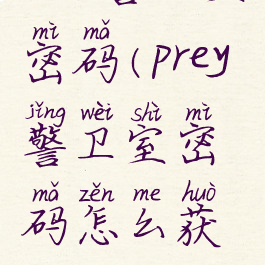 mì mǎ
密码(prey
jǐng wèi shì mì
警卫室密
mǎ zěn me huò
码怎么获